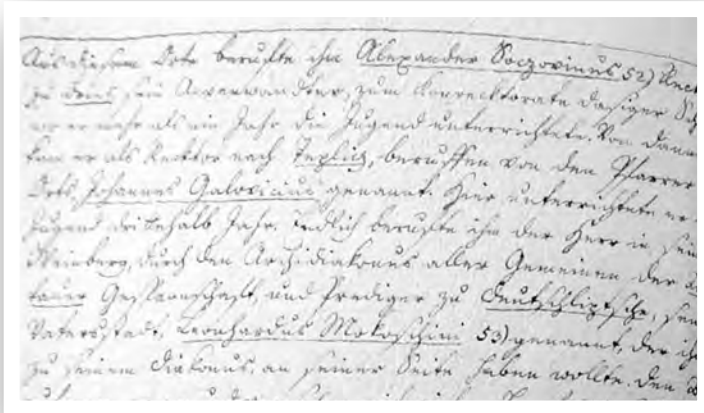 Aus diesem Orte berufte ihn Alexander Soczovinus 52) Rect
zu sein Anverwandter, zum Konrecktorate dasiger Sch
wo er mehr als ein Jahr die Jugend unterrichtete. Von dann
kam er als Recktor nach Teplicz, beruffen von den Pfarrer
Orts Johannes Galovicius genannt. Hier unterrichtete er
Jugend drittehalb Jahr. Endlich berufte ihn der Herr in sein
Weinberg, durch den Archidiakonus aller Gemeinen der
tauer Gespannschaft, und Prediger zu Deutschliptsche, sei
Vatersstadt, Leonhardus Mokoschini 53) genannt, der ihn
zu seinem Diakonus, an seiner Seite haben wollte. Den